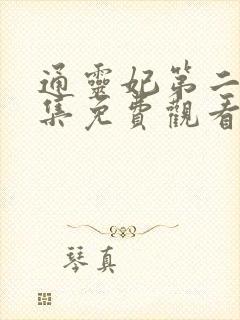 通靈妃第二
集免費觀看
琴真